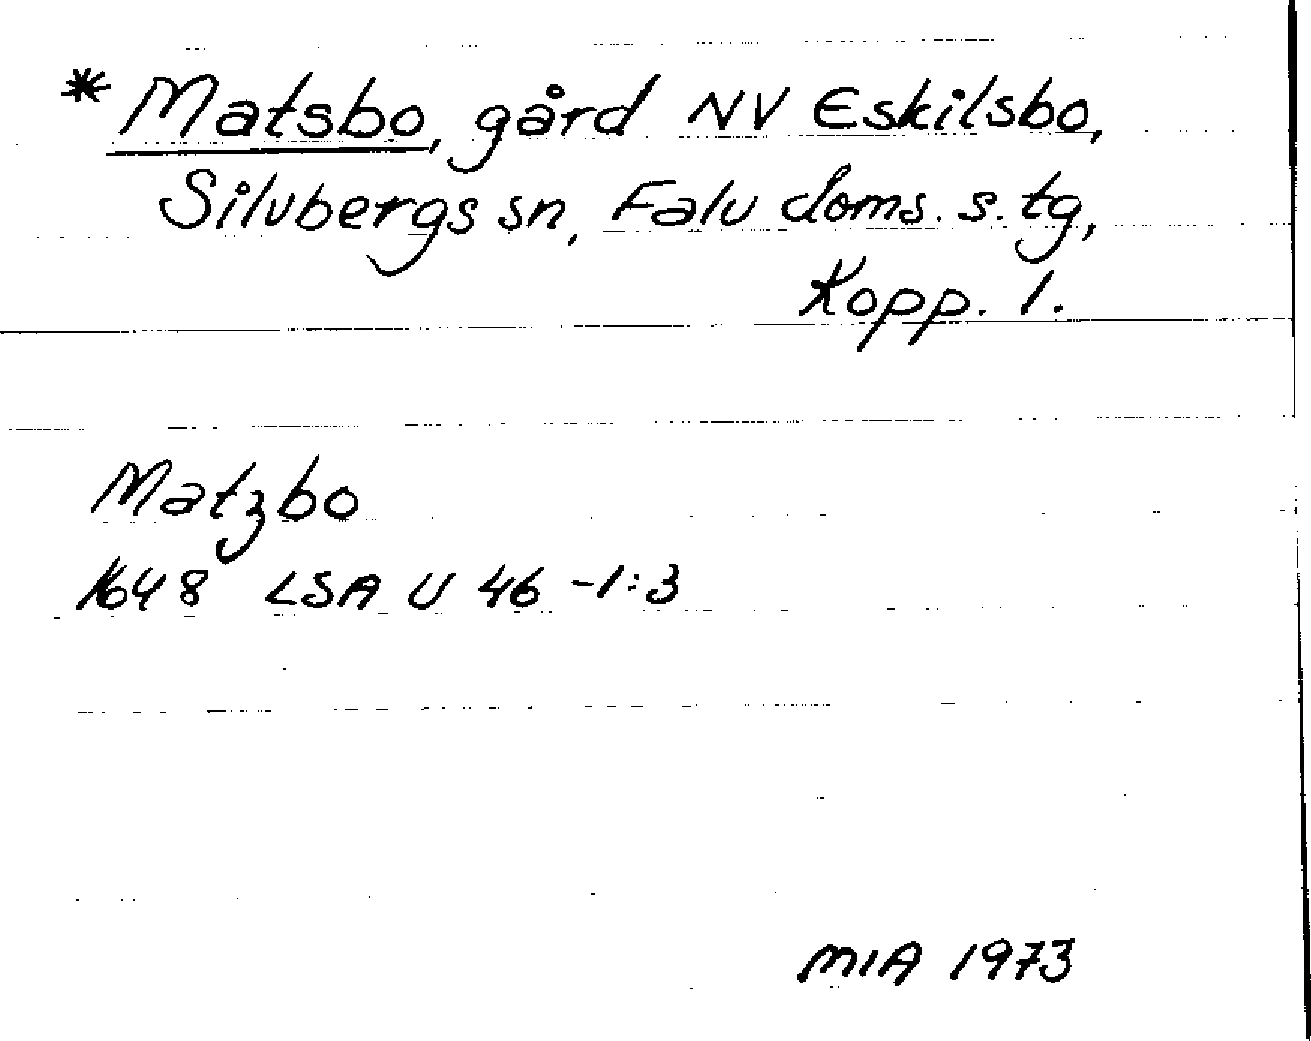 * Matsbo, gård NV Eskilsbo,
Silvbergs sn, Falu doms. s. tg,
Kopp. l.
Matzbo
1648 LSA U 46 -1:3
MIA 1973